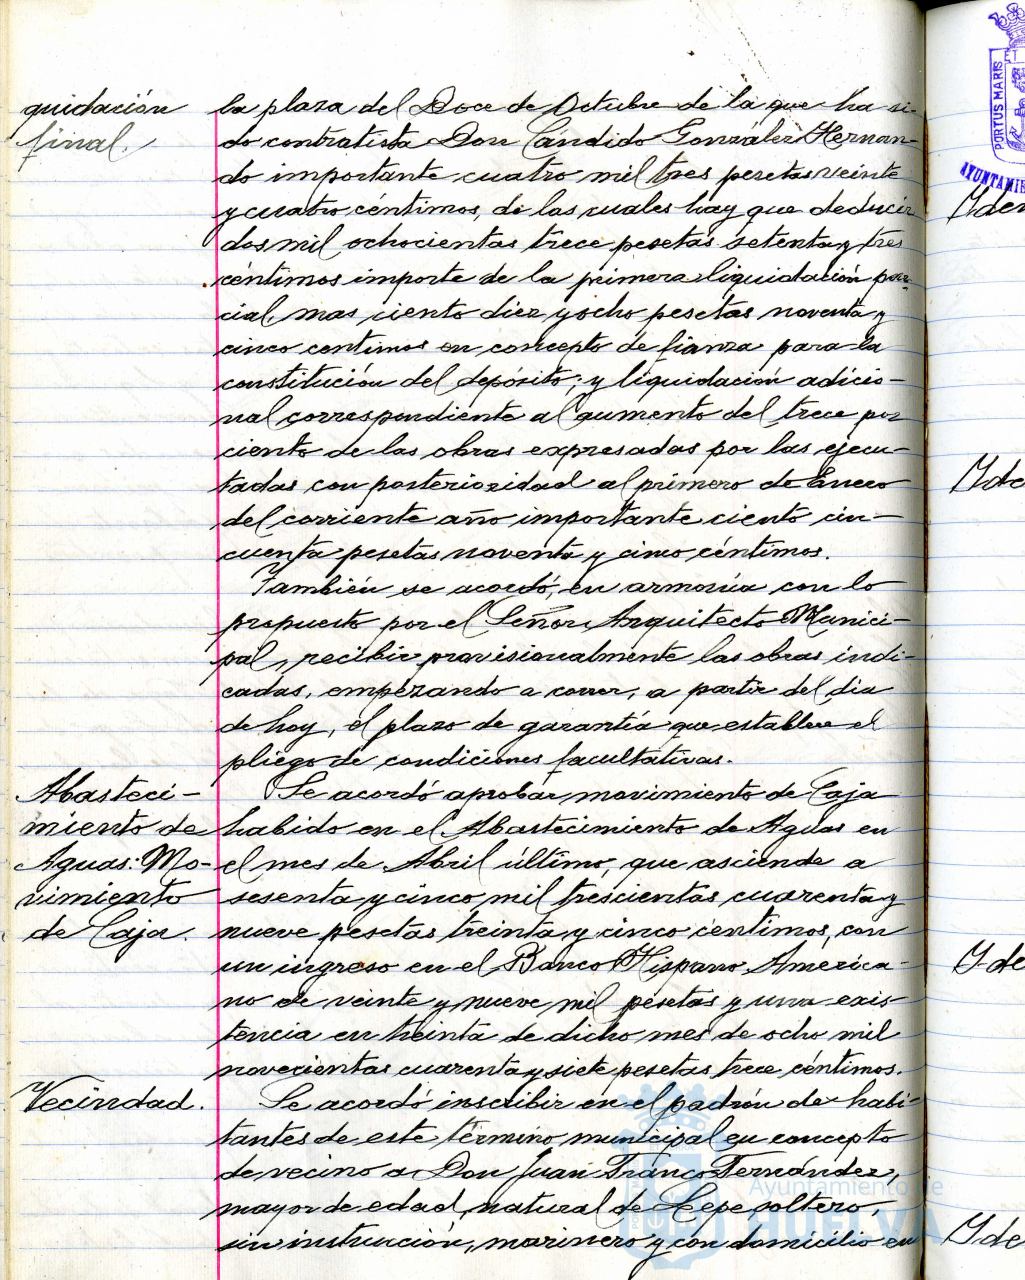 quidación
final.
la plaza del Doce de Octubre de la que ha si-
do contratista Don Cándido González Hernan-
do importante cuatro mil tres pesetas veinte
y cuatro céntimos, de las cuales hay que deducir
dos mil ochocientas trece pesetas setenta y tres
céntimos importe de la primera liquidación par-
cial, mas ciento diez y ocho pesetas noventa y
cinco centimos en concepto de fianza para la
constitución del depósito; y liquidación adicio-
nal correspondiente al aumento del trece por
ciento de las obras expresadas por las ejecu-
tadas con posterioridad al primero de Enero
del corriente año importante ciento cin-
cuenta pesetas noventa y cinco céntimos.
También se acordó, en armonía con lo
propuesto por el Señor Arquitecto Munici-
pal, recibir provisionalmente las obras indi-
cadas, empezando a correr, a partir del dia
de hoy, el plazo de garantía que establece el
pliego de condiciones facultativas.
Abasteci-
miento de
Aguas: Mo-
vimiento
de Caja.
Se acordó aprobar movimiento de Caja
habido en el Abastecimiento de Aguas en
el mes de Abril último, que asciende a
sesenta y cinco mil trescientas cuarenta y
nueve pesetas treinta y cinco céntimos, con
un ingreso en el Banco Hispano America-
no de veinte y nueve mil pesetas y una exis-
tencia en treinta de dicho mes de ocho mil
novecientas cuarenta y siete pesetas trece céntimos.
Vecindad.
Se acordó inscribir en el padrón de habi-
tantes de este término municipal en concepto
de vecino a Don Juan Franco Fernández,
mayor de edad, natural de Lepe, soltero,
sin instrucción, marinero y con domicilio en
Ayuntamiento de
HUELVA
PORTUS MARIS
AYUNTAMIE
Iden
Ide
Ide
Ide